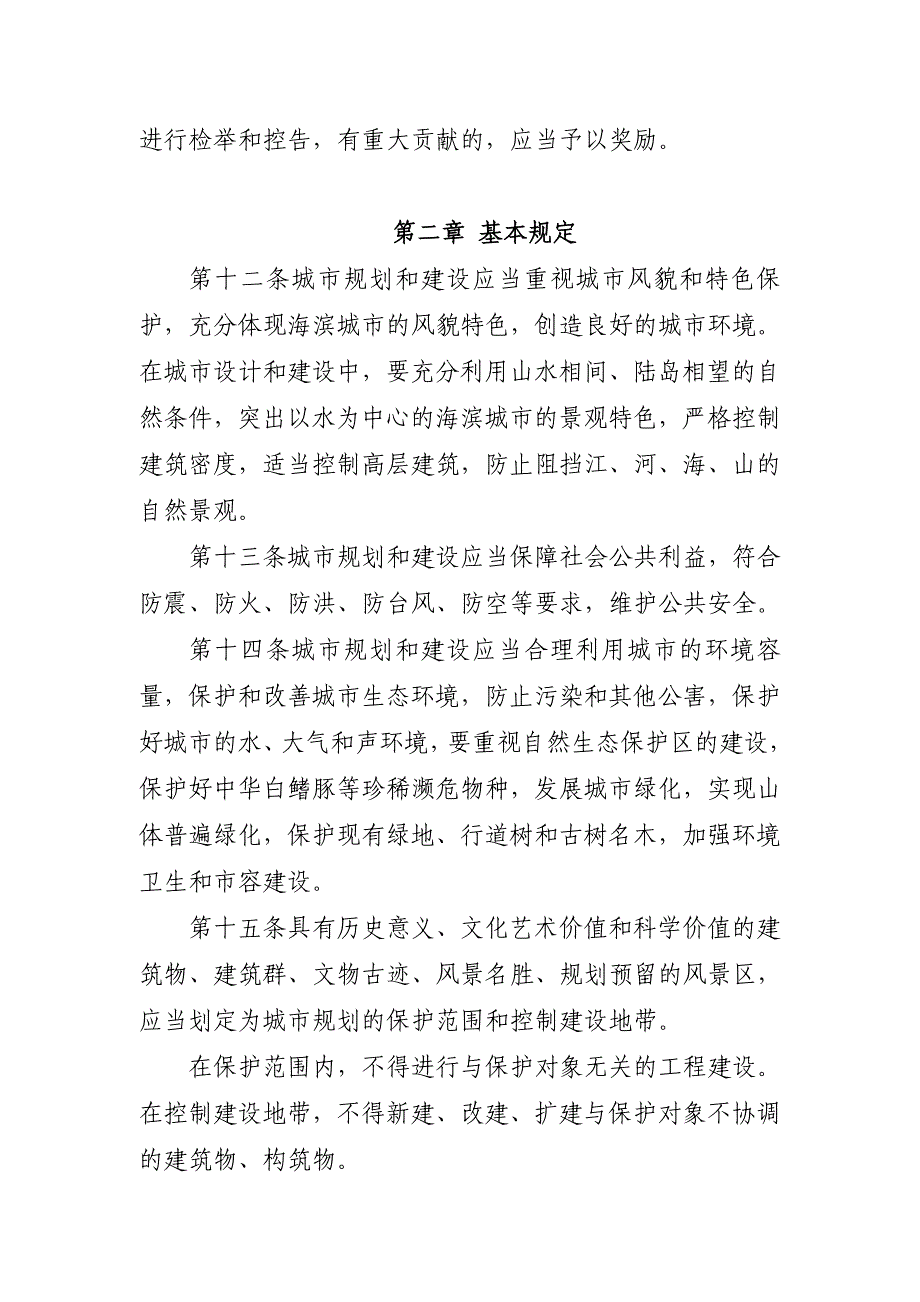 进行检举和控告，有重大贡献的，应当予以奖励。
第二章 基本规定
第十二条城市规划和建设应当重视城市风貌和特色保
护，充分体现海滨城市的风貌特色，创造良好的城市环境。
在城市设计和建设中，要充分利用山水相间、陆岛相望的自
然条件，突出以水为中心的海滨城市的景观特色，严格控制
建筑密度，适当控制高层建筑，防止阻挡江、河、海、山的
自然景观。
第十三条城市规划和建设应当保障社会公共利益，符合
防震、防火、防洪、防台风、防空等要求，维护公共安全。
第十四条城市规划和建设应当合理利用城市的环境容
量，保护和改善城市生态环境，防止污染和其他公害，保护
好城市的水、大气和声环境，要重视自然生态保护区的建设，
保护好中华白鳍豚等珍稀濒危物种，发展城市绿化，实现山
体普遍绿化，保护现有绿地、行道树和古树名木，加强环境
卫生和市容建设。
第十五条具有历史意义、文化艺术价值和科学价值的建
筑物、建筑群、文物古迹、风景名胜、规划预留的风景区，
应当划定为城市规划的保护范围和控制建设地带。
在保护范围内，不得进行与保护对象无关的工程建设。
在控制建设地带，不得新建、改建、扩建与保护对象不协调
的建筑物、构筑物。